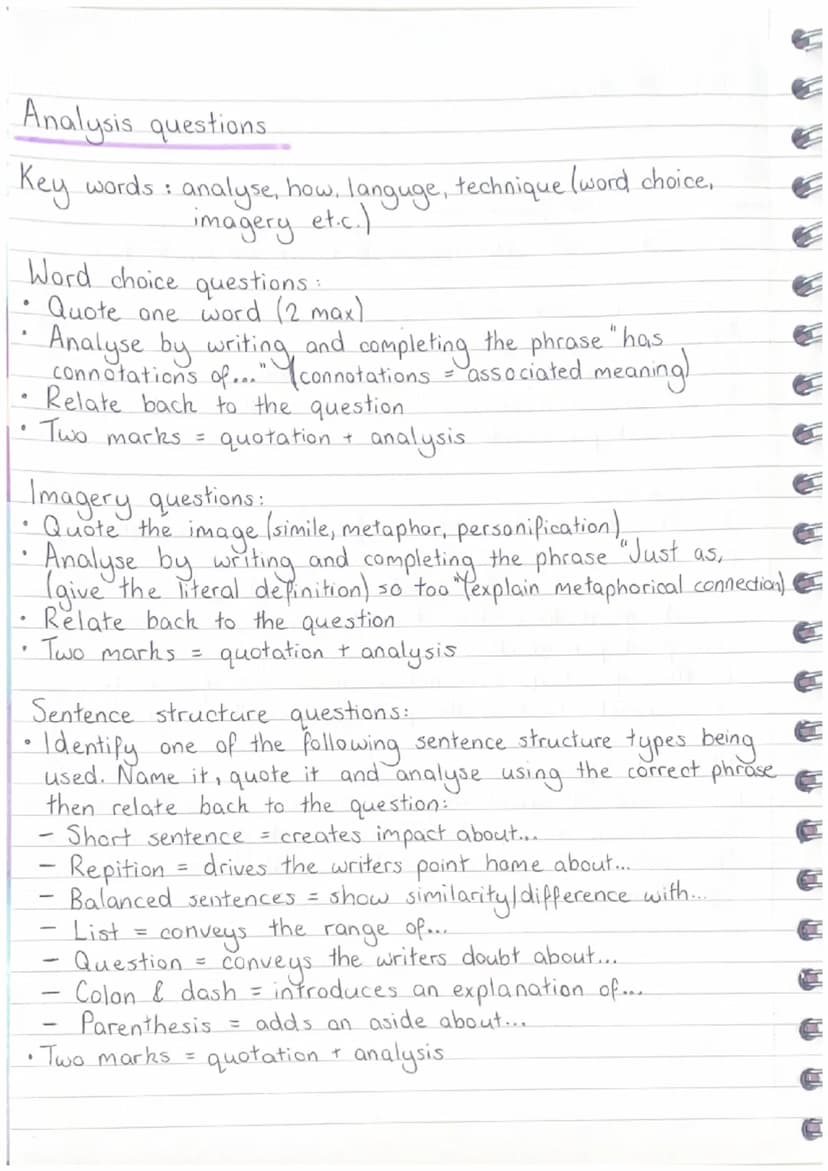 Analysis questions
Key words : analyse, how, languge, technique (word choice,
imagery et.c.)
Word choice questions :
• Quote one word (2 max)
• Analyse by writing and completing the phrase "has
connotations of..." (connotations = associated meaning)
• Relate back to the question
• Two marks = quotation + analysis
Imagery questions:
• Quote the image (simile, metaphor, personification)
• Analyse by writing and completing the phrase "Just as,
(give the literal definition) so too" (explain metaphorical connection)
• Relate back to the question
• Two marks = quotation + analysis
Sentence structure questions:
• Identify one of the following sentence structure types being
used. Name it, quote it and analyse using the correct phrase
then relate back to the question:
– Short sentence = creates impact about...
– Repition = drives the writers point home about...
– Balanced sentences = show similarity/difference with...
– List = conveys the range of...
– Question = conveys the writers doubt about...
– Colon & dash = introduces an explanation of...
– Parenthesis = adds an aside about...
• Two marks = quotation + analysis